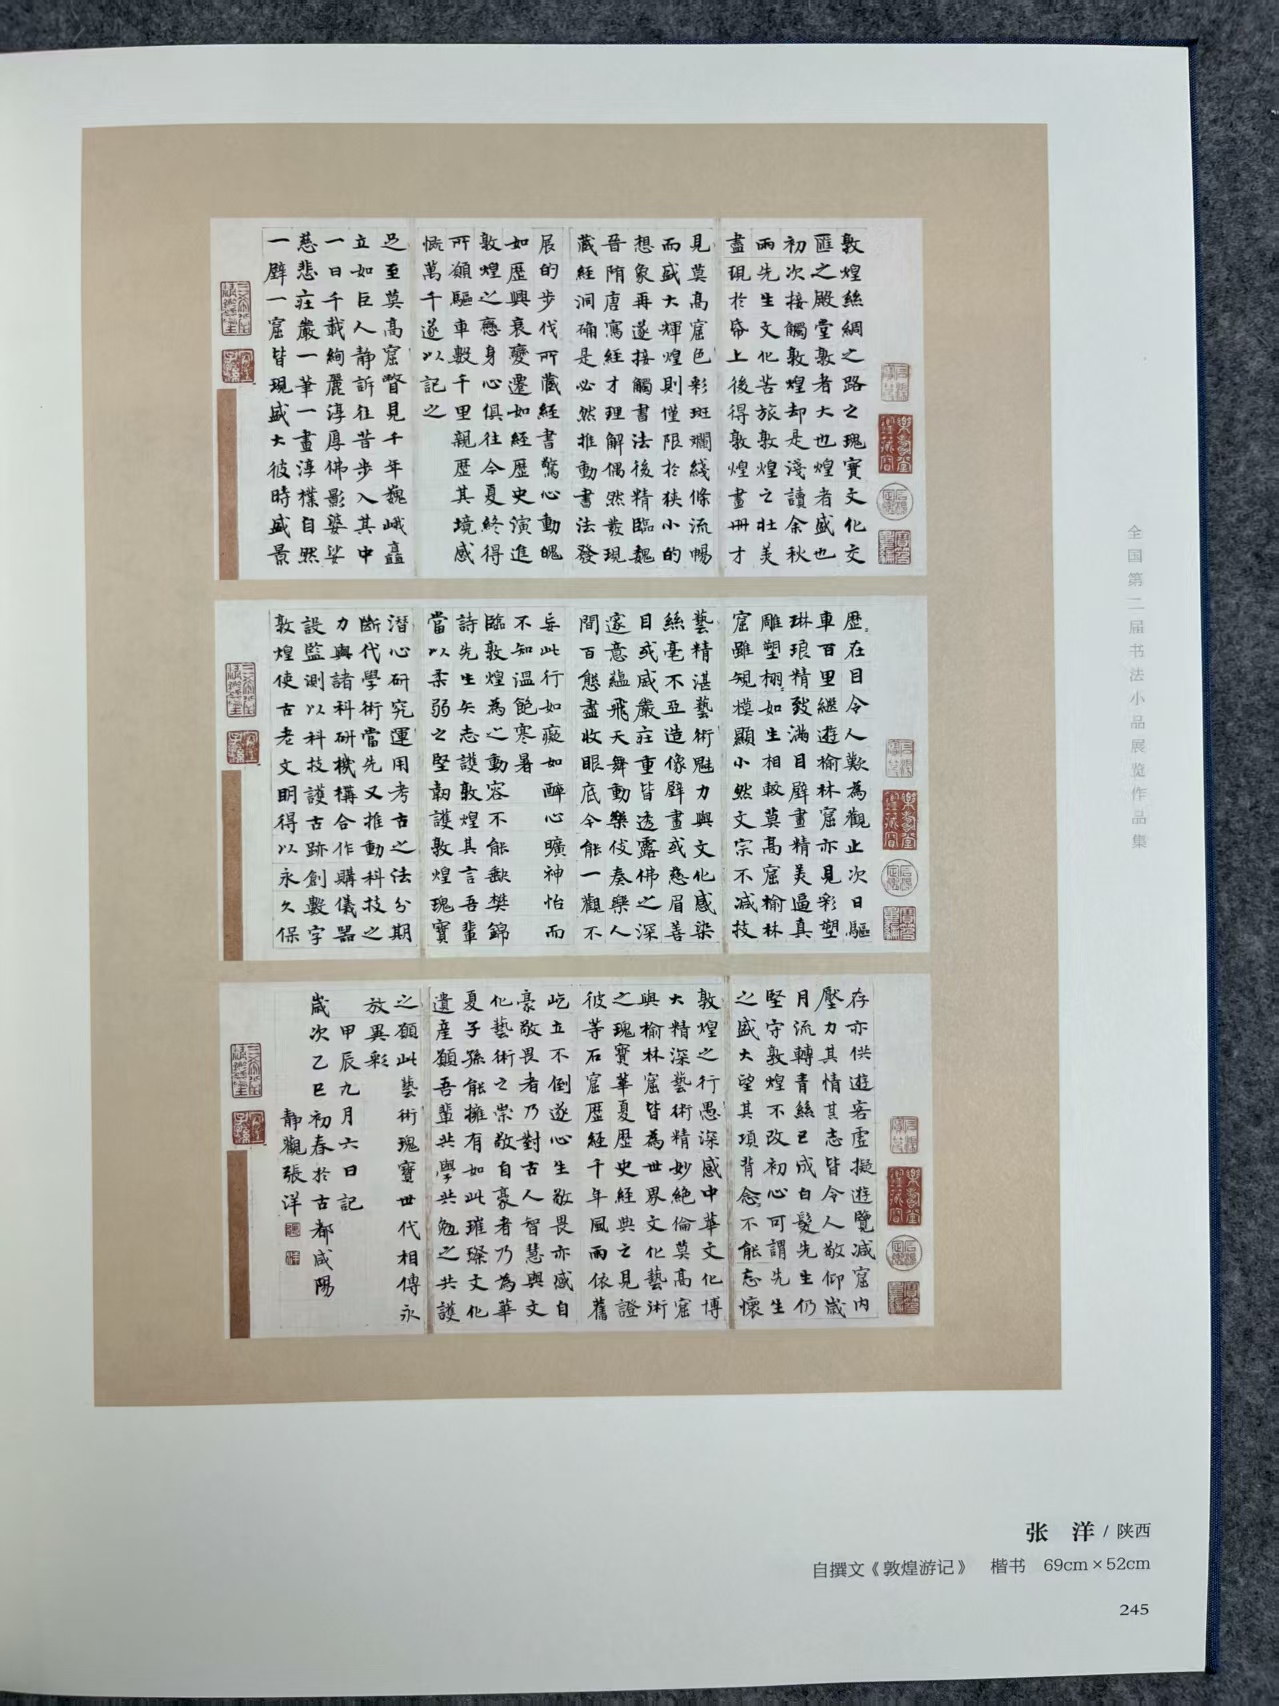 敦煌絲綢之路之瑰寶文化交
匯之殿堂敦者大也煌者盛也
初次接觸敦煌却是淺讀余秋
雨先生文化苦旅敦煌之壯美
盡現於帋上後得敦煌畫册才
見莫高窟色彩斑斕綫條流暢
而盛大輝煌則僅限於狹小的
想象再遂接觸書法後精臨魏
晉隋唐寫經才理解偶然發現
藏經洞确是必然推動書法發
展的步伐所藏經書驚心動魄
如歷興衰變遷如經歷史演進
敦煌之戀身心俱往今夏終得
所願驅車數千里親歷其境感
慨萬千遂以記之
足至莫高窟瞥見千年巍峨矗
立如巨人靜訴往昔步入其中
一日千載絢麗淳厚佛影婆娑
慈悲莊嚴一華一畫淳樸自然
一壁一窟皆現盛大彼時盛景
歷々在目令人歎為觀止次日驅
車百里繼遊榆林窟亦見彩塑
琳琅精致滿目壁畫精美逼真
雕塑栩々如生相較莫高窟榆林
窟雖規模顯小然文宗不減技
藝精湛藝術魅力與文化感染
絲毫不亞造像壁畫或慈眉善
目或威嚴莊重皆透露佛之深
邃意蘊飛天舞動樂伎奏樂人
間百態盡收眼底今能一觀不
妄此行如癡如醉心曠神怡而
不知溫飽寒暑
臨敦煌為之動容不能歎樊錦
詩先生矢志護敦煌其言吾輩
當以柔弱之堅韌護敦煌瑰寶
潛心研究運用考古之法分期
斷代學術當先又推動科技之
力與諸科研機構合作購儀器
設監測以科技護古跡創數字
敦煌使古老文明得以永久保
存亦供遊客虛擬遊覽減窟內
壓力其情其志皆令人敬仰歲
月流轉青絲已成白髮先生仍
堅守敦煌不改初心可謂先生
之盛大望其項背念々不能忘懷
敦煌之行愚深感中華文化博
大精深藝術精妙絕倫莫高窟
與榆林窟皆為世界文化藝術
之瑰寶華夏歷史經典之見證
彼等石窟歷經千年風雨依舊
屹立不倒遂心生敬畏亦感自
豪敬畏者乃對古人智慧與文
化藝術之崇敬自豪者乃為華
夏子孫能擁有如此璀璨文化
遺產願吾輩共學共勉之共護
之願此藝術瑰寶世代相傳永
放異彩
甲辰九月六日記
歲次乙巳初春於古都咸陽
靜觀張洋
全国第二届书法小品展览作品集
张 洋 / 陕西
自撰文《敦煌游记》 楷书 69cm×52cm
245